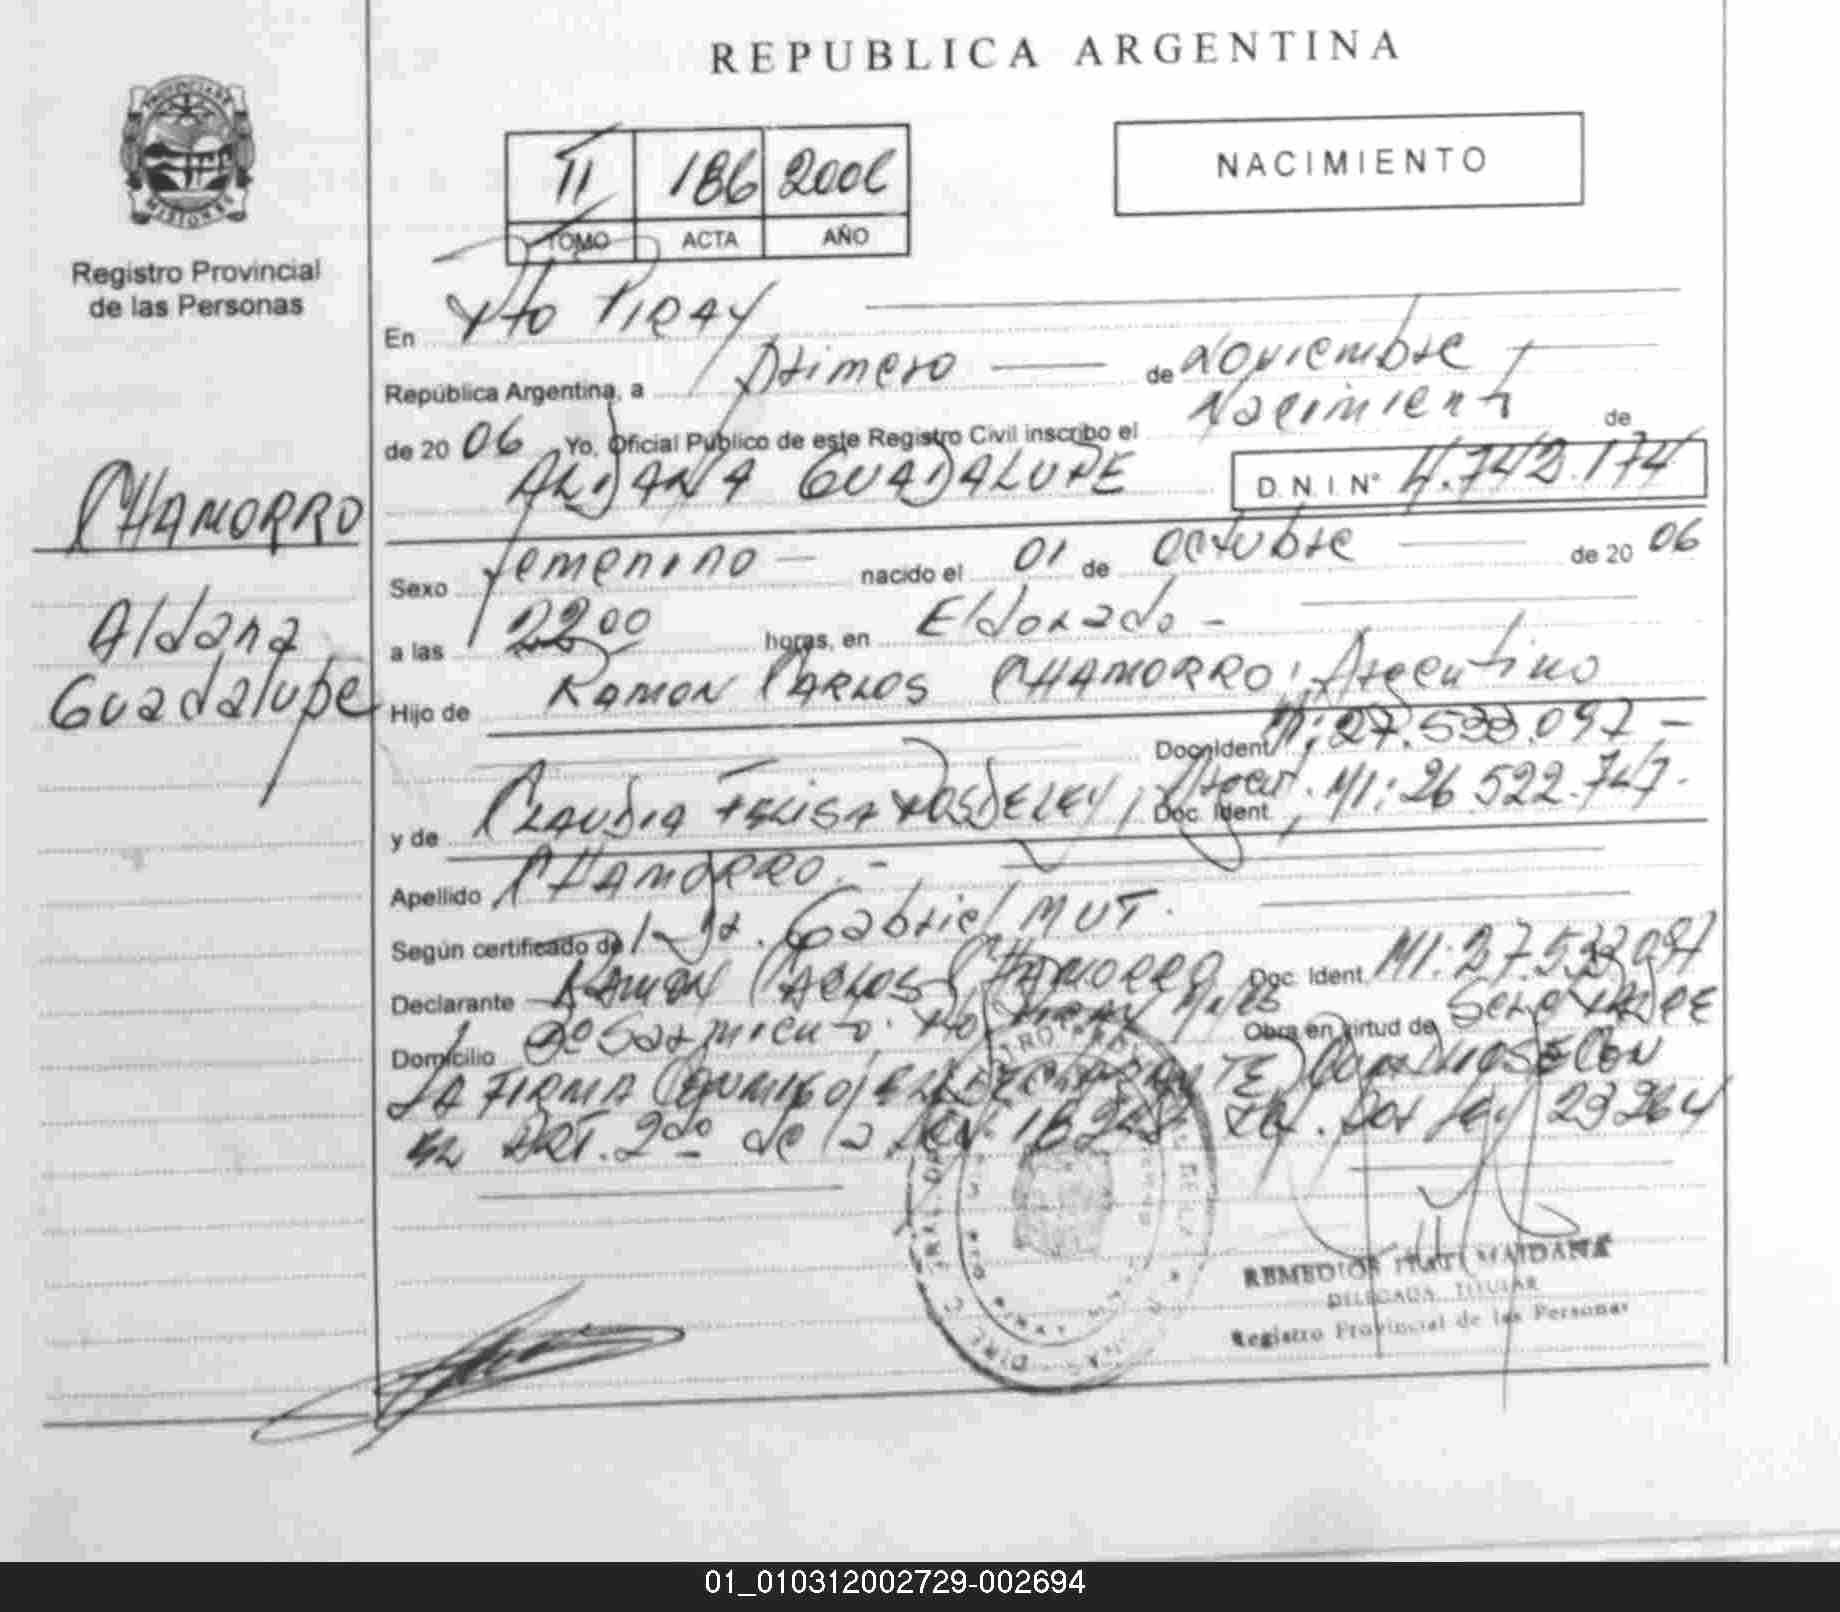 REPUBLICA ARGENTINA
PROVINCIA DE
MISIONES
Registro Provincial
de las Personas
NACIMIENTO
II 186 2006
TOMO ACTA AÑO
En Pto PIRAY
República Argentina, a Primero de Noviembre
de 20 06 Yo, Oficial Público de este Registro Civil inscribo el Nacimiento de
ALDANA GUADALUPE D.N.I. N° 4.742.174
CHAMORRO
Aldana
Guadalupe
Sexo femenino nacido el 01 de octubre de 20 06
a las 22 00 horas, en Eldorado -
Hijo de RAMON CARLOS CHAMORRO, Argentino
Doc. Ident MI: 27.533.097 -
y de CLAUDIA FELISA Argent. Doc. Ident MI: 26.522.747.
Apellido CHAMORRO. -
Según certificado de Gabriel MUT.
Declarante RAMON CARLOS CHAMORRO Doc. Ident. MI: 27.533.097
Domicilio Bº Sarmiento. Pto PIRAY Mnes Obra en virtud de
LA FIRMA CONMIGO EL DECLARANTE CON
EL ART. 2do de la Ley. 18.248 por Ley 23264
REMEDIOS ITATI MAIDANA
DELEGADA TITULAR
Registro Provincial de las Personas
01_010312002729-002694